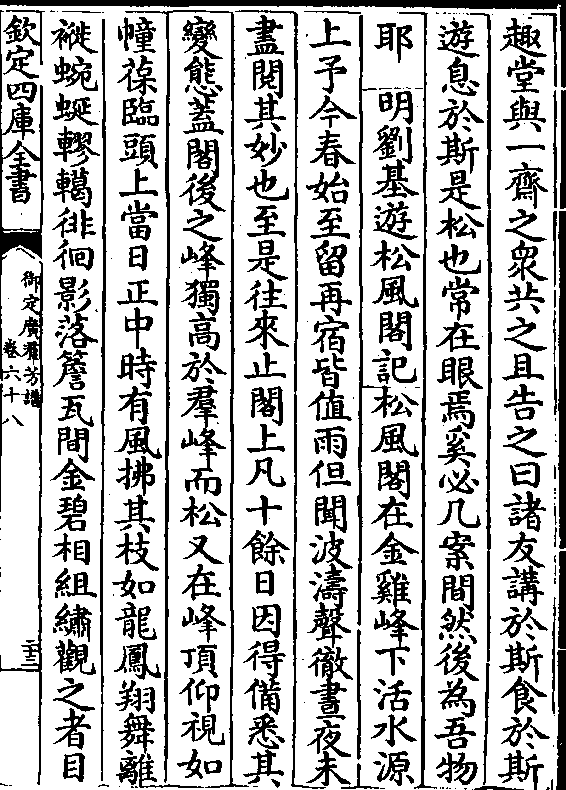 趣堂與一齋之衆共之且告之曰諸友講於斯食於斯
遊息於斯是松也常在眼焉奚必几案間然後為吾物
耶　明劉基遊松風閣記松風閣在金雞峰下活水源
上予今春始至留再宿皆值雨但聞波濤聲徹晝夜未
盡閱其妙也至是往來止閣上凡十餘日因得備悉其
變態蓋閣後之峰獨高於羣峰而松又在峰頂仰視如
幢葆臨頭上當日正中時有風拂其枝如龍鳳翔舞離
褷蜿蜒轇轕徘徊影落簷瓦間金碧相組繡觀之者目
欽定四庫全書
御定廣羣芳譜
卷六十八
二十三